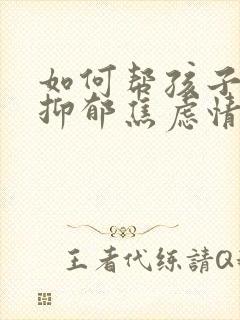 如何帮孩子
抑郁焦虑情
王者代练請Q